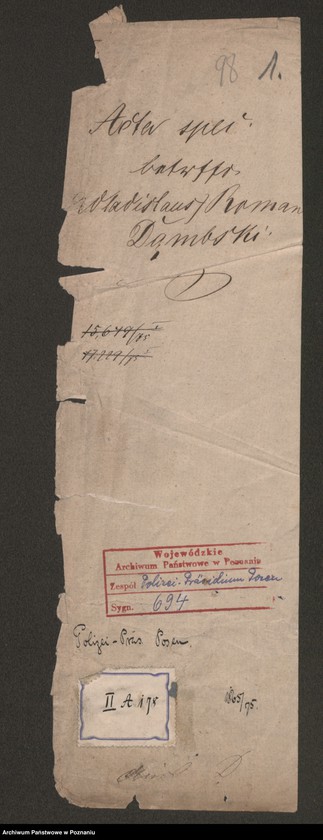 98 1.
Acta spec.
betreffd.
Wladislaus Roman
Dąmbski.
15,649/75 I
17.229/75 I
Wojewódzkie
Archiwum Państwowe w Poznaniu
Zespół Polizei-Präsidium Posen
Sygn. 694
Polizei-Präs Posen.
II A 178
1865/75.
© Archiwum Państwowe w Poznaniu
© Archiwum Państwowe w Poznaniu